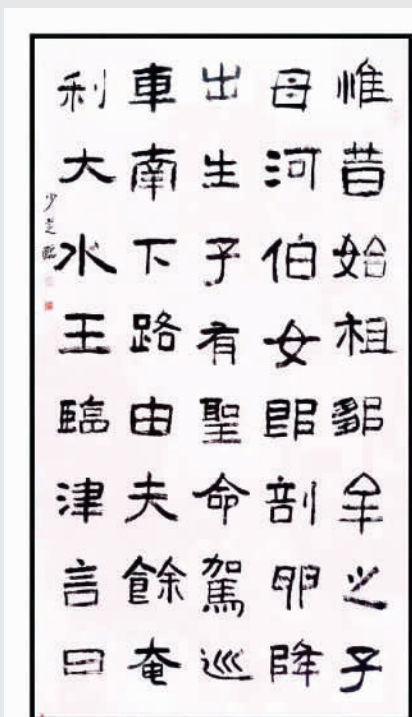 惟昔始祖鄒牟之子
母河伯女郎剖卵降
出生子有聖命駕巡
車南下路由夫餘奄
利大水王臨津言曰
少 臨